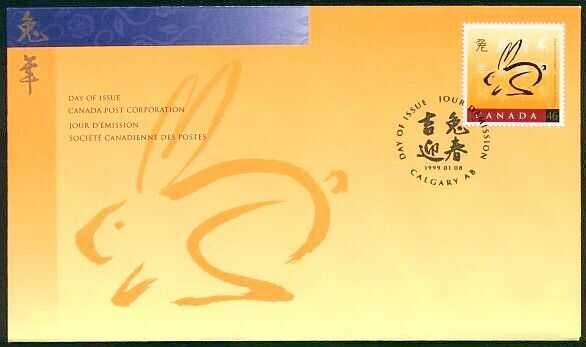 兔
年
DAY OF ISSUE
CANADA POST CORPORATION
JOUR D'ÉMISSION
SOCIÉTÉ CANADIENNE DES POSTES
兔
CANADA 46
DAY OF ISSUE JOUR D'ÉMISSION
吉兔
迎春
1999 01 08
CALGARY AB